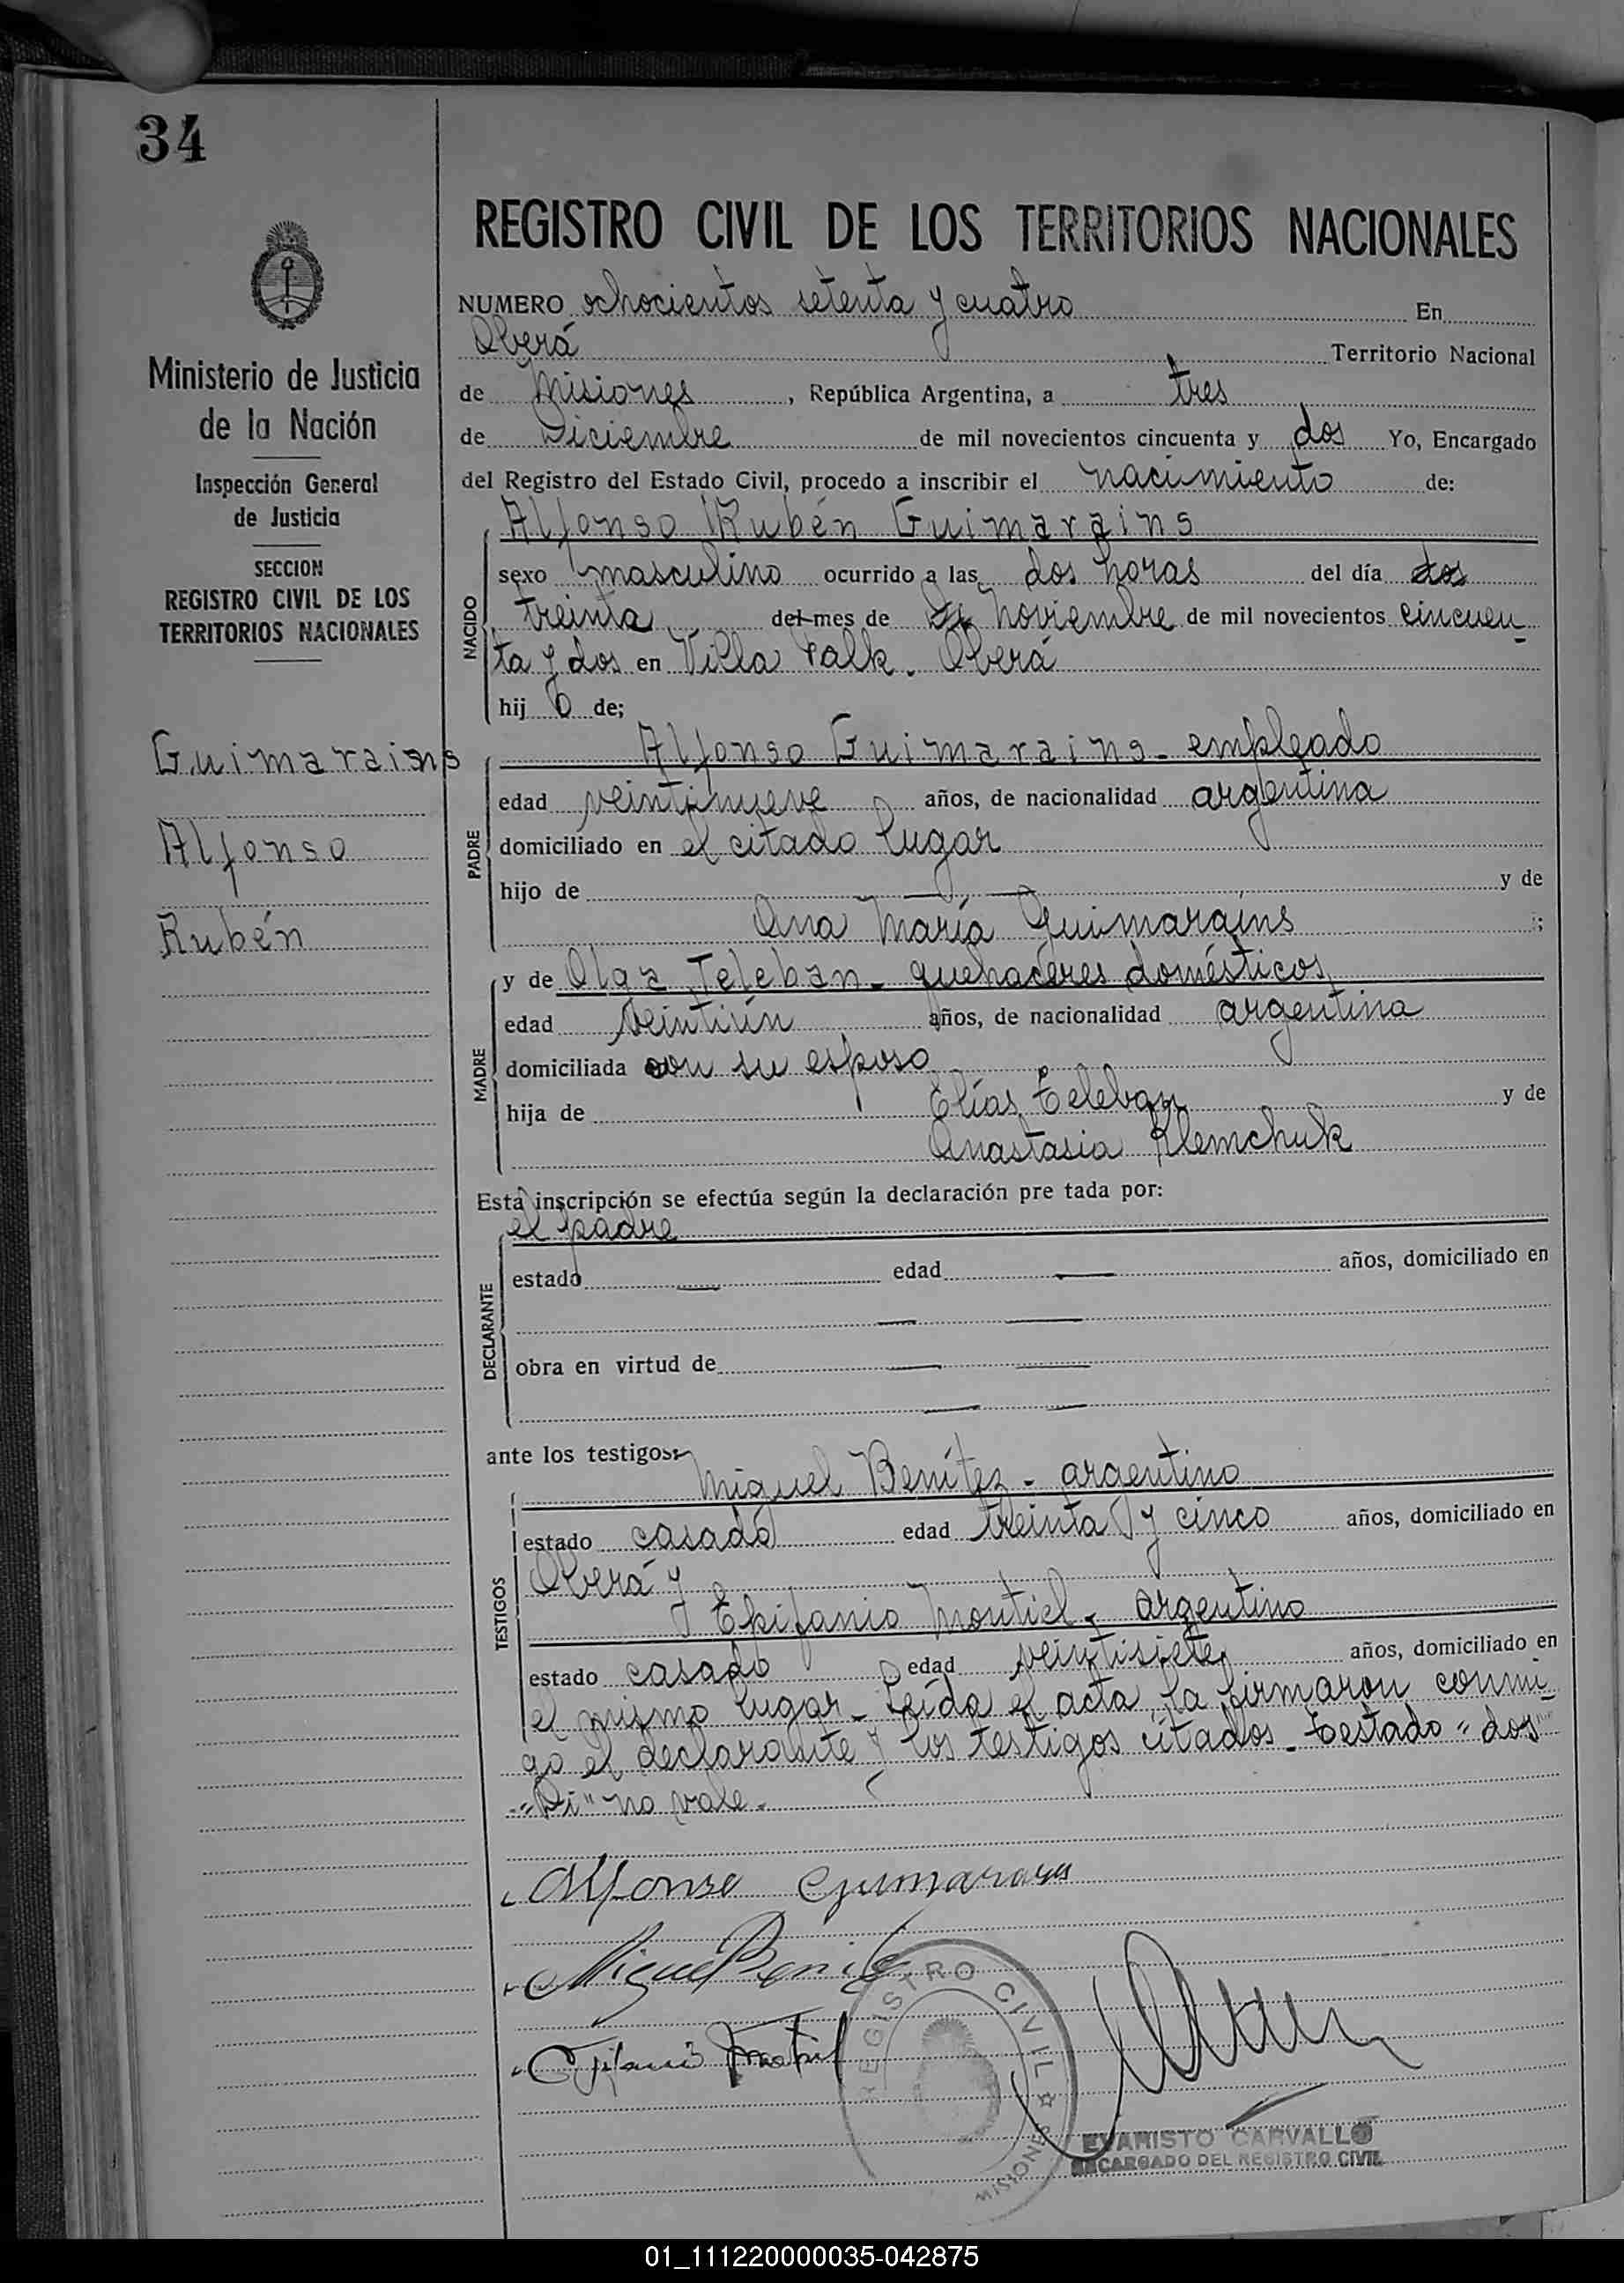 34
Ministerio de Justicia
de la Nación
Inspección General
de Justicia
SECCION
REGISTRO CIVIL DE LOS
TERRITORIOS NACIONALES
Guimarains
Alfonso
Rubén
REGISTRO CIVIL DE LOS TERRITORIOS NACIONALES
NUMERO ochocientos setenta y cuatro En
Oberá Territorio Nacional
de Misiones, República Argentina, a tres
de Diciembre de mil novecientos cincuenta y dos Yo, Encargado
del Registro del Estado Civil, procedo a inscribir el nacimiento de:
Alfonso Rubén Guimarains
NACIDO
sexo masculino ocurrido a las dos horas del día dos
treinta del mes de Di Noviembre de mil novecientos cincuen-
ta y dos en Villa Falk. Oberá
hijo de;
Alfonso Guimarains - empleado
PADRE
edad veintinueve años, de nacionalidad argentina
domiciliado en el citado lugar
hijo de — — y de
Ana María Guimarains ;
MADRE
y de Olga Teleban - quehaceres domésticos
edad veintiún años, de nacionalidad argentina
domiciliada con su esposo
hija de Elías Teleban y de
Anastasia Klemchuk
Esta inscripción se efectúa según la declaración pre tada por:
el padre
DECLARANTE
estado — edad — años, domiciliado en
— —
obra en virtud de — —
— —
ante los testigos:
Miguel Benítez - argentino
TESTIGOS
estado casado edad treinta y cinco años, domiciliado en
Oberá y
Epifanio Montiel - argentino
estado casado edad veintisiete años, domiciliado en
el mismo lugar - Leída el acta, la firmaron conmi-
go el declarante y los testigos citados - Testado "dos"
"Di" no vale.
Alfonso Guimarains
Miguel Benitez
REGISTRO CIVIL
MISIONES
EVARISTO CARVALLO
ENCARGADO DEL REGISTRO CIVIL
01_111220000035-042875